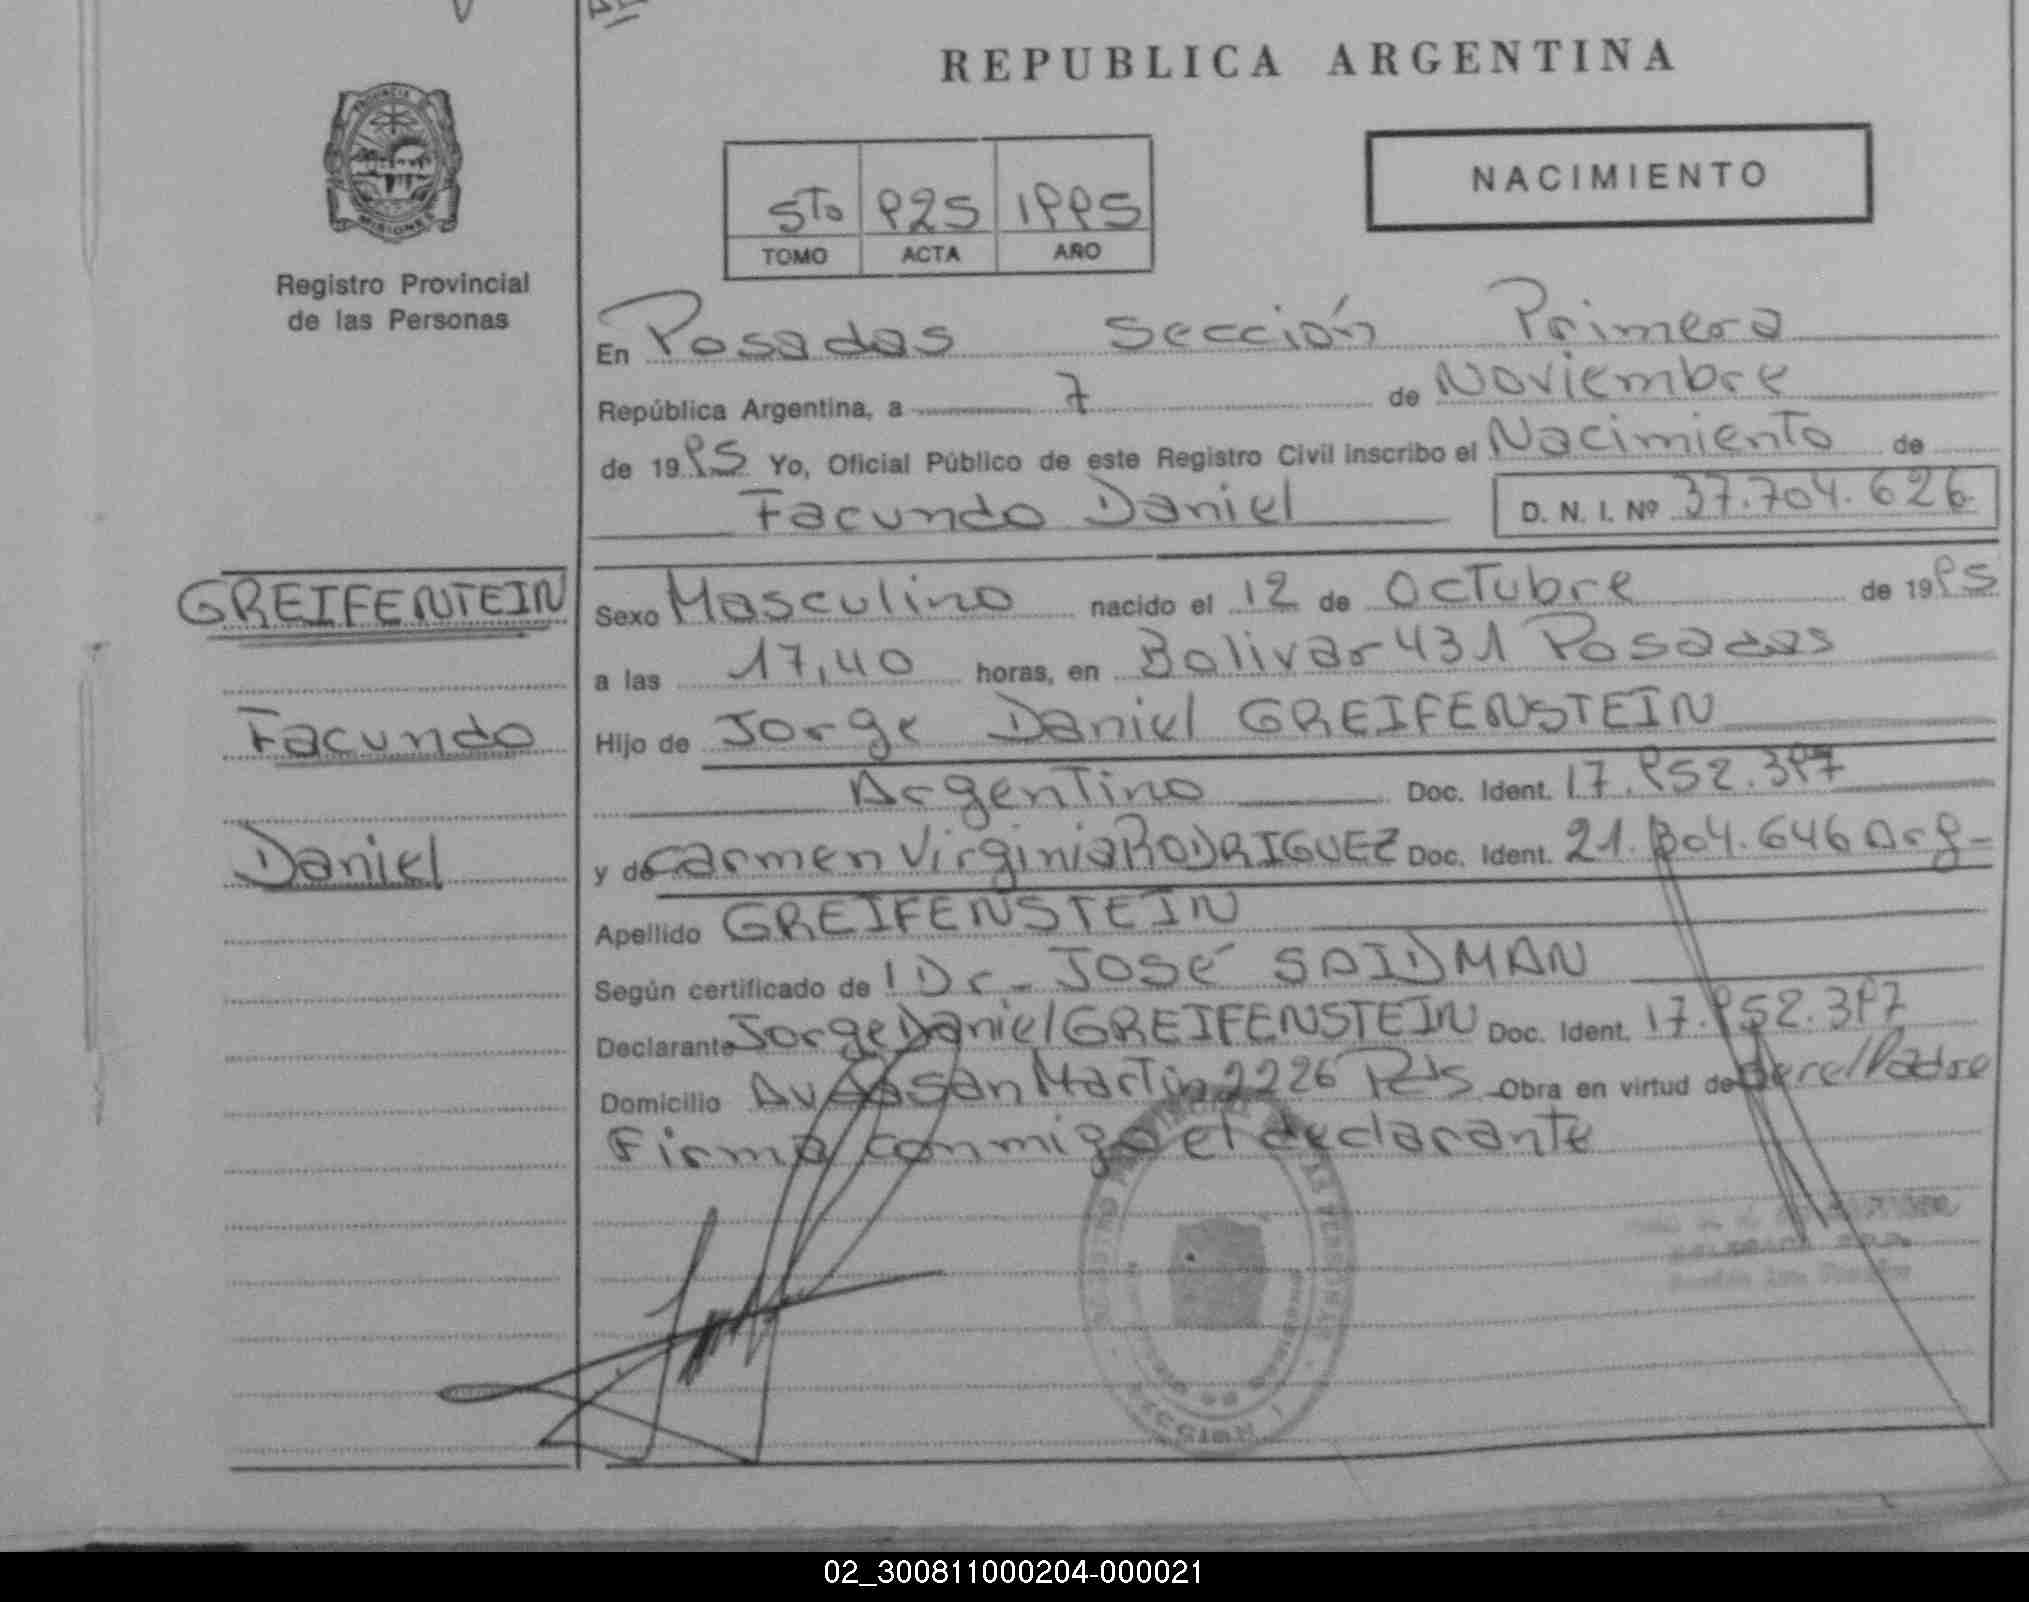 REPUBLICA ARGENTINA
NACIMIENTO
5To 925 1995
TOMO ACTA AÑO
PROVINCIA
MISIONES
Registro Provincial
de las Personas
En Posadas Sección Primera
República Argentina, a 7 de Noviembre
de 1995 Yo, Oficial Público de este Registro Civil inscribo el Nacimiento de
Facundo Daniel D. N. I. Nº 37.704.626
GREIFENTEIN
Facundo
Daniel
Sexo Masculino nacido el 12 de Octubre de 1995
a las 17,40 horas, en Bolivar 431 Posadas
Hijo de Jorge Daniel GREIFENSTEIN
Argentino Doc. Ident. 17.952.397
y de Carmen Virginia RODRIGUEZ Doc. Ident. 21.304.646 Arg-
Apellido GREIFENSTEIN
Según certificado de Dr- JOSÉ SAIDMAN
Declarante Jorge Daniel GREIFENSTEIN Doc. Ident. 17.952.397
Domicilio San Martin 2226 Pds Obra en virtud de
Firma conmigo el declarante
02_300811000204-000021